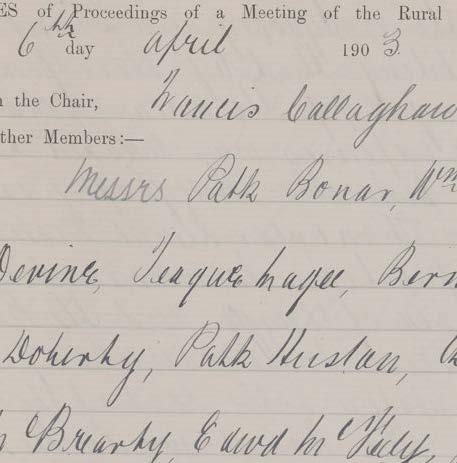 ES of Proceedings of a Meeting of the Rural
6th day April 1903
n the Chair, Francis Callaghan
ther Members:—
Messrs Patk Bonar, Wm
Devine, Teague Magee, Bern
Doherty, Patk Huston,
Brearty, Edwd McFeely,